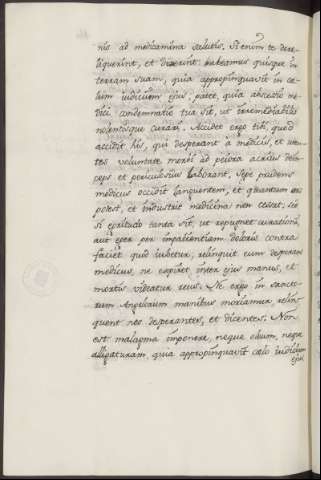 nis ad medicamina salutis. Si enim te dere-
liquerint, et dixerint: eamus quisque in
terram suam, quia appropinquavit in cæ-
lum iudicium ejus; parce, quia abscessio me-
dici condemnatio tua sit, ut irremediabilis
nolentisque curari. Accidet ergo tibi, quod
accidit his, qui desperant a medicis, et uten-
tes voluntate morbi ad peiora acrius
ceps et periculosius laborant. Sepe prudens
medicus occidit languentem, et quantum in eo
potest, et industria medicina non cessat: sic
si ægritudo tanta sit, ut repugnet curationi,
aut æger per impatientiam doloris contra
faciet quid iubetur, relinquit eum desperans
medicus, ne expiret inter ejus manus, et
mortis videatur reus. Ne ergo in sancto-
rum Angelorum manibus moriamur, relin-
quent nos desperantes, et dicentes. Non
est malagma imponere, neque oleum, neque
alligaturam, quia appropinquavit cælo iudicium
ejus